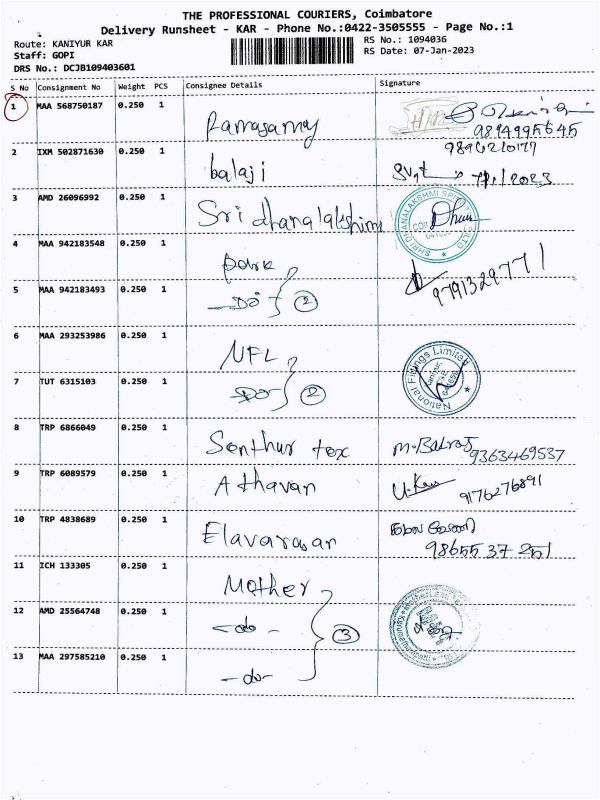 THE PROFESSIONAL COURIERS, Coimbatore
Delivery Runsheet - KAR - Phone No.:0422-3505555 - Page No.:1
Route: KANIYUR KAR
RS No.: 1094036
Staff: GOPI
RS Date: 07-Jan-2023
DRS No.: DCJB109403601
S No Consignment No Weight PCS Consignee Details Signature
1 MAA 568750187 0.250 1 Ramasamy
9894995645
2 IXM 502871630 0.250 1 balaji
3 AMD 26096992 0.250 1 Sri dhanalakshimi
4 MAA 942183548 0.250 1 park
9791329771
5 MAA 942183493 0.250 1 -Do- 2
6 MAA 293253986 0.250 1 NFL
National Fittings Limited
7 TUT 6315103 0.250 1 -Do- 2
8 TRP 6866049 0.250 1 Senthur tex M.Balraj
9363469537
9 TRP 6089579 0.250 1 Athavan
9176276891
10 TRP 4838689 0.250 1 Elavarasan
98655 37 251
11 ICH 133305 0.250 1 Mother
12 AMD 25564748 0.250 1 -do- 3
13 MAA 297585210 0.250 1 -do-